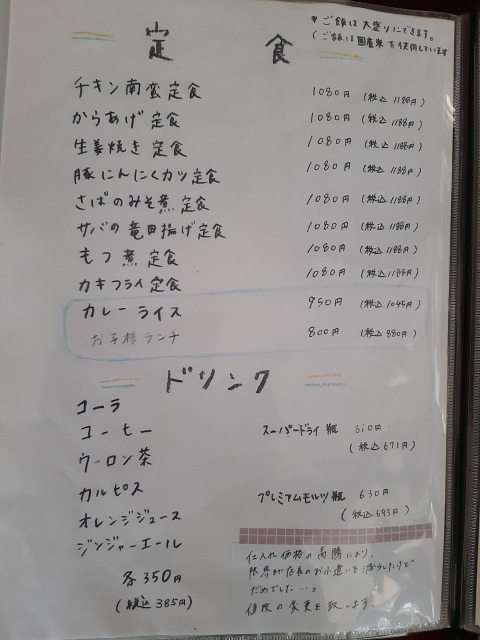 * ご飯は大盛りにできます。
(ご飯は国産米を使用しています
定食
チキン南蛮定食 1080円 (税込1188円)
からあげ定食 1080円 (税込1188円)
生姜焼き定食 1080円 (税込1188円)
豚にんにくカツ定食 1080円 (税込1188円)
さばのみそ煮定食 1080円 (税込1188円)
サバの竜田揚げ定食 1080円 (税込1188円)
もつ煮定食 1080円 (税込1188円)
カキフライ定食 1080円 (税込1188円)
カレーライス 950円 (税込1045円)
お子様ランチ 800円 (税込880円)
ドリンク
コーラ
コーヒー
ウーロン茶
カルピス
オレンジジュース
ジンジャーエール
各350円
(税込385円)
スーパードライ瓶 610円
(税込671円)
プレミアムモルツ瓶 630円
(税込693円)
仕入れ価格の高騰により、
限界が店長のお小遣いを減らしたけど
だめでした…。
値段の変更を致します。